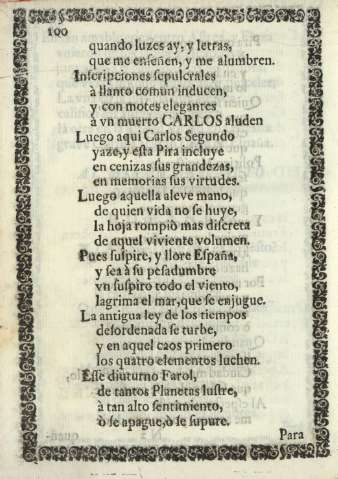 100
quando luzes ay, y letras,
que me enseñen, y me alumbren.
Inscripciones sepulcrales
à llanto comun inducen,
y con motes elegantes
à vn muerto CARLOS aluden
Luego aqui Carlos Segundo
yaze, y esta Pira incluye
en cenizas sus grandezas,
en memorias sus virtudes.
Luego aquella aleve mano,
de quien vida no se huye,
la hoja rompiò mas discreta
de aquel viviente volumen.
Pues suspire, y llore España,
y sea à su pesadumbre
vn suspiro todo el viento,
lagrima el mar, que se enjugue.
La antigua ley de los tiempos
desordenada se turbe,
y en aquel caos primero
los quatro elementos luchen.
Esse diuturno Farol,
de tantos Planetas lustre,
à tan alto sentimiento,
ò se apague, ò se supure.
Para